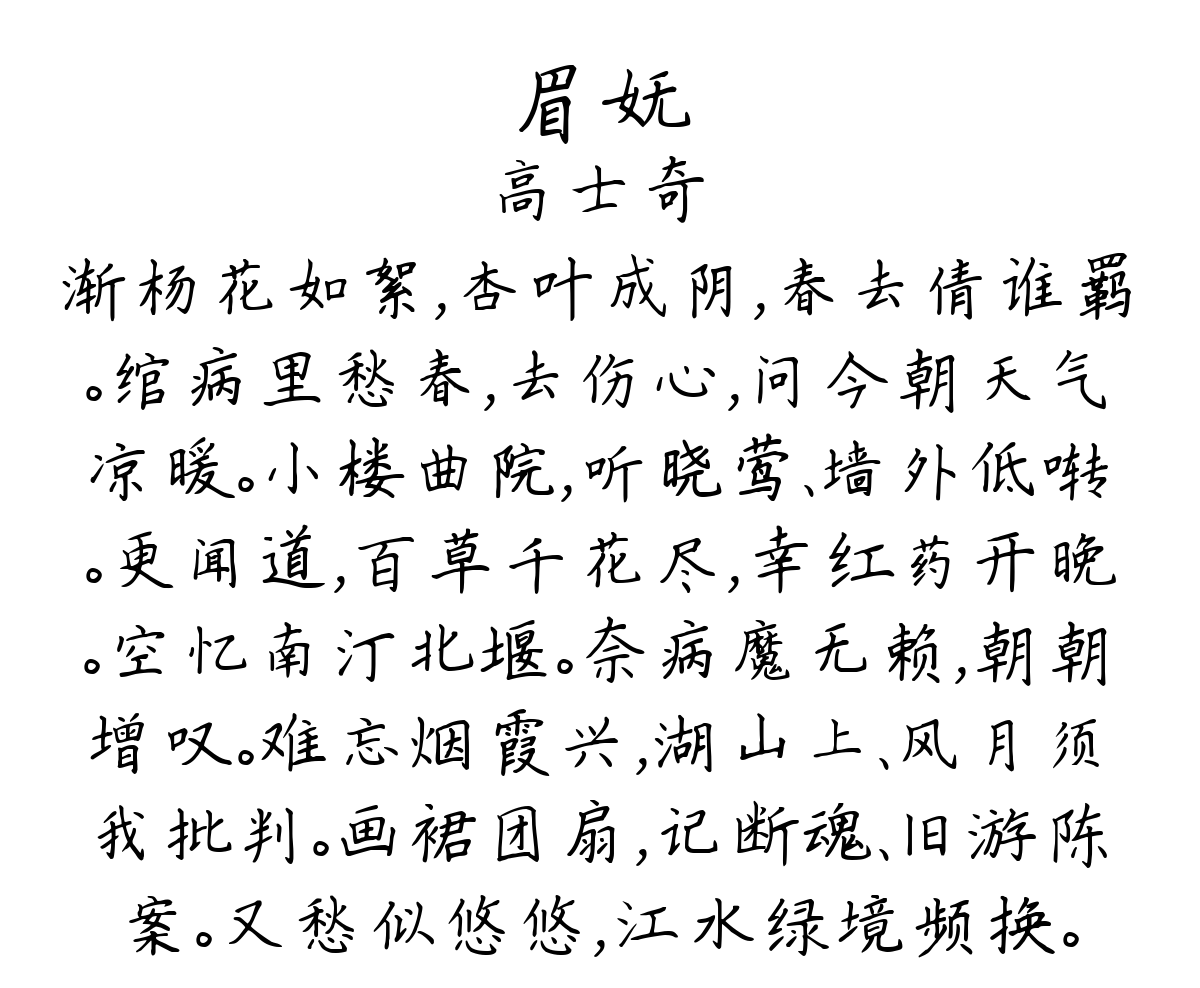 眉妩
高士奇
渐杨花如絮,杏叶成阴,春去倩谁羁
。绾病里愁春,去伤心,问今朝天气
凉暖。小楼曲院,听晓莺、墙外低啭
。更闻道,百草千花尽,幸红药开晚
。空忆南汀北堰。奈病魔无赖,朝朝
增叹。难忘烟霞兴,湖山上、风月须
我批判。画裙团扇,记断魂、旧游陈
案。又愁似悠悠,江水绿境频换。